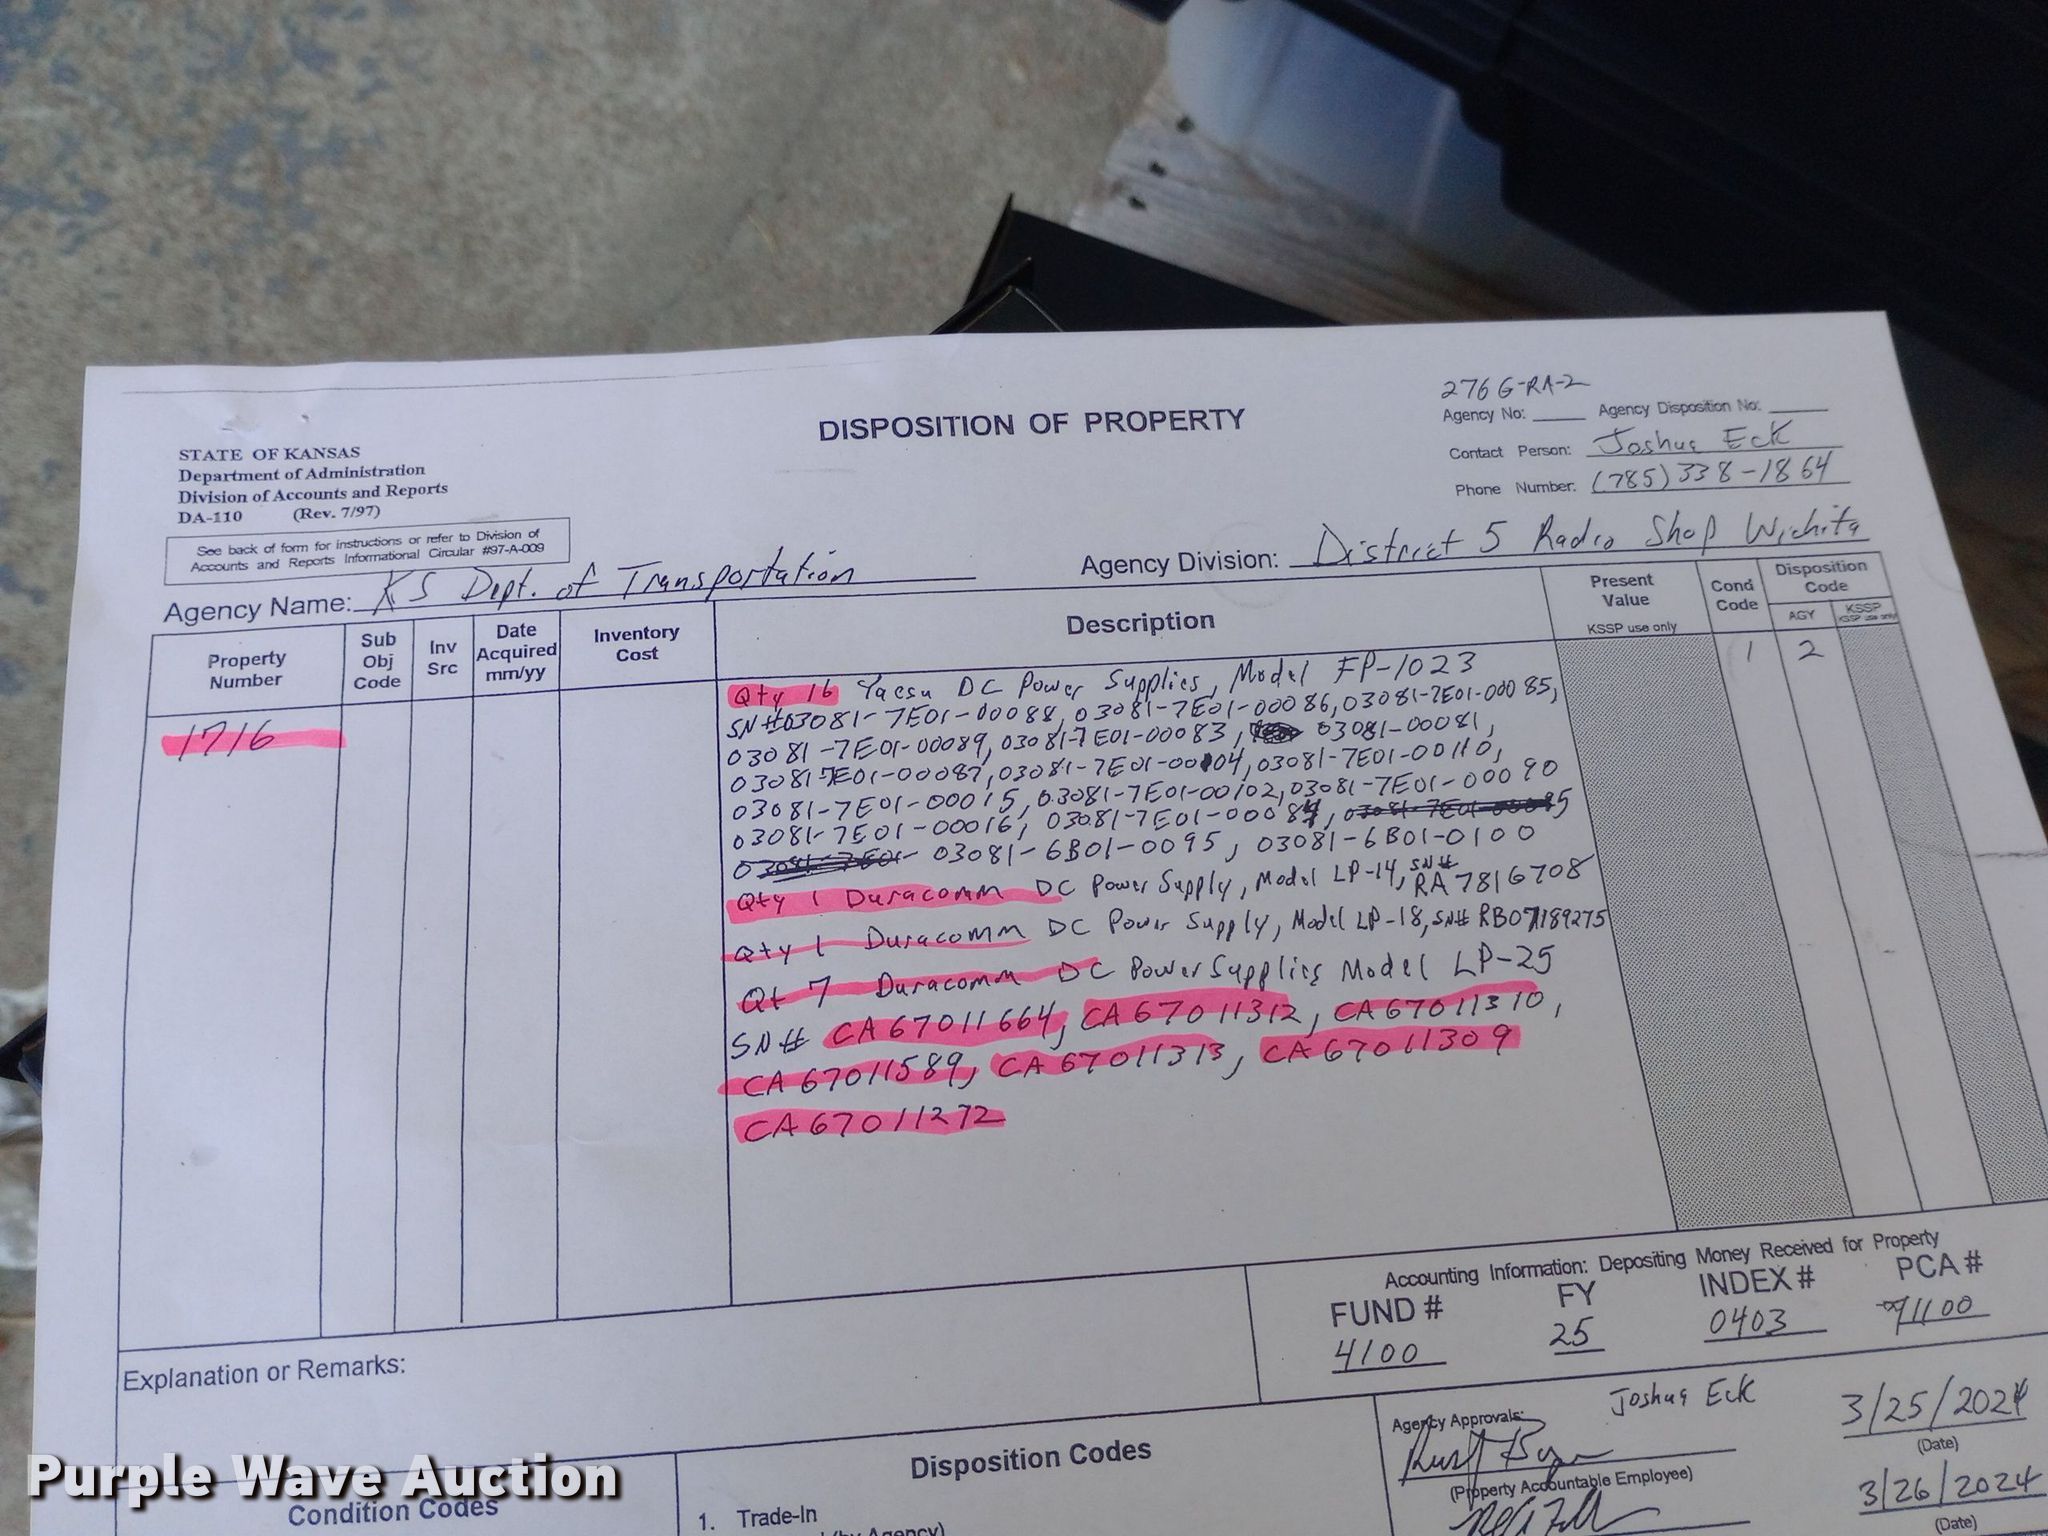 276 G-RA-2
DISPOSITION OF PROPERTY
Agency No: Agency Disposition No:
Contact Person: Joshua Eck
Phone Number: (785) 338-1864
STATE OF KANSAS
Department of Administration
Division of Accounts and Reports
DA-110 (Rev. 7/97)
See back of form for instructions or refer to Division of
Accounts and Reports Informational Circular #97-A-009
Agency Name: KS Dept. of Transportation
Agency Division: District 5 Radio Shop Wichita
Property Number
Sub Obj Code
Inv Src
Date Acquired mm/yy
Inventory Cost
Description
Present Value
KSSP use only
Cond Code
Disposition Code
AGY
KSSP
KSSP use only
1716
1 2
Qty 16 Yaesu DC Power Supplies, Model FP-1023
SN#03081-7E01-00088, 03081-7E01-00086, 03081-7E01-00085,
03081-7E01-00089, 03081-7E01-00083, 03081-00081,
03081-7E01-00087, 03081-7E01-00104, 03081-7E01-00110,
03081-7E01-00015, 03081-7E01-00102, 03081-7E01-00090
03081-7E01-00016, 03081-7E01-00084,
03081-6B01-0095, 03081-6B01-0100
Qty 1 Duracomm DC Power Supply, Model LP-14, SN# RA7816708
Qty 1 Duracomm DC Power Supply, Model LP-18, SN# RB07189275
Qt 7 Duracomm DC Power Supplies Model LP-25
SN# CA67011664, CA67011312, CA67011310,
CA67011589, CA67011313, CA67011309
CA67011272
Accounting Information: Depositing Money Received for Property
FUND # FY INDEX # PCA #
4100 25 0403 91100
Explanation or Remarks:
Joshua Eck
Agency Approvals:
3/25/2024
(Property Accountable Employee) (Date)
3/26/2024
(Date)
Condition Codes
Disposition Codes
1. Trade-In
(by Agency)
Purple Wave Auction